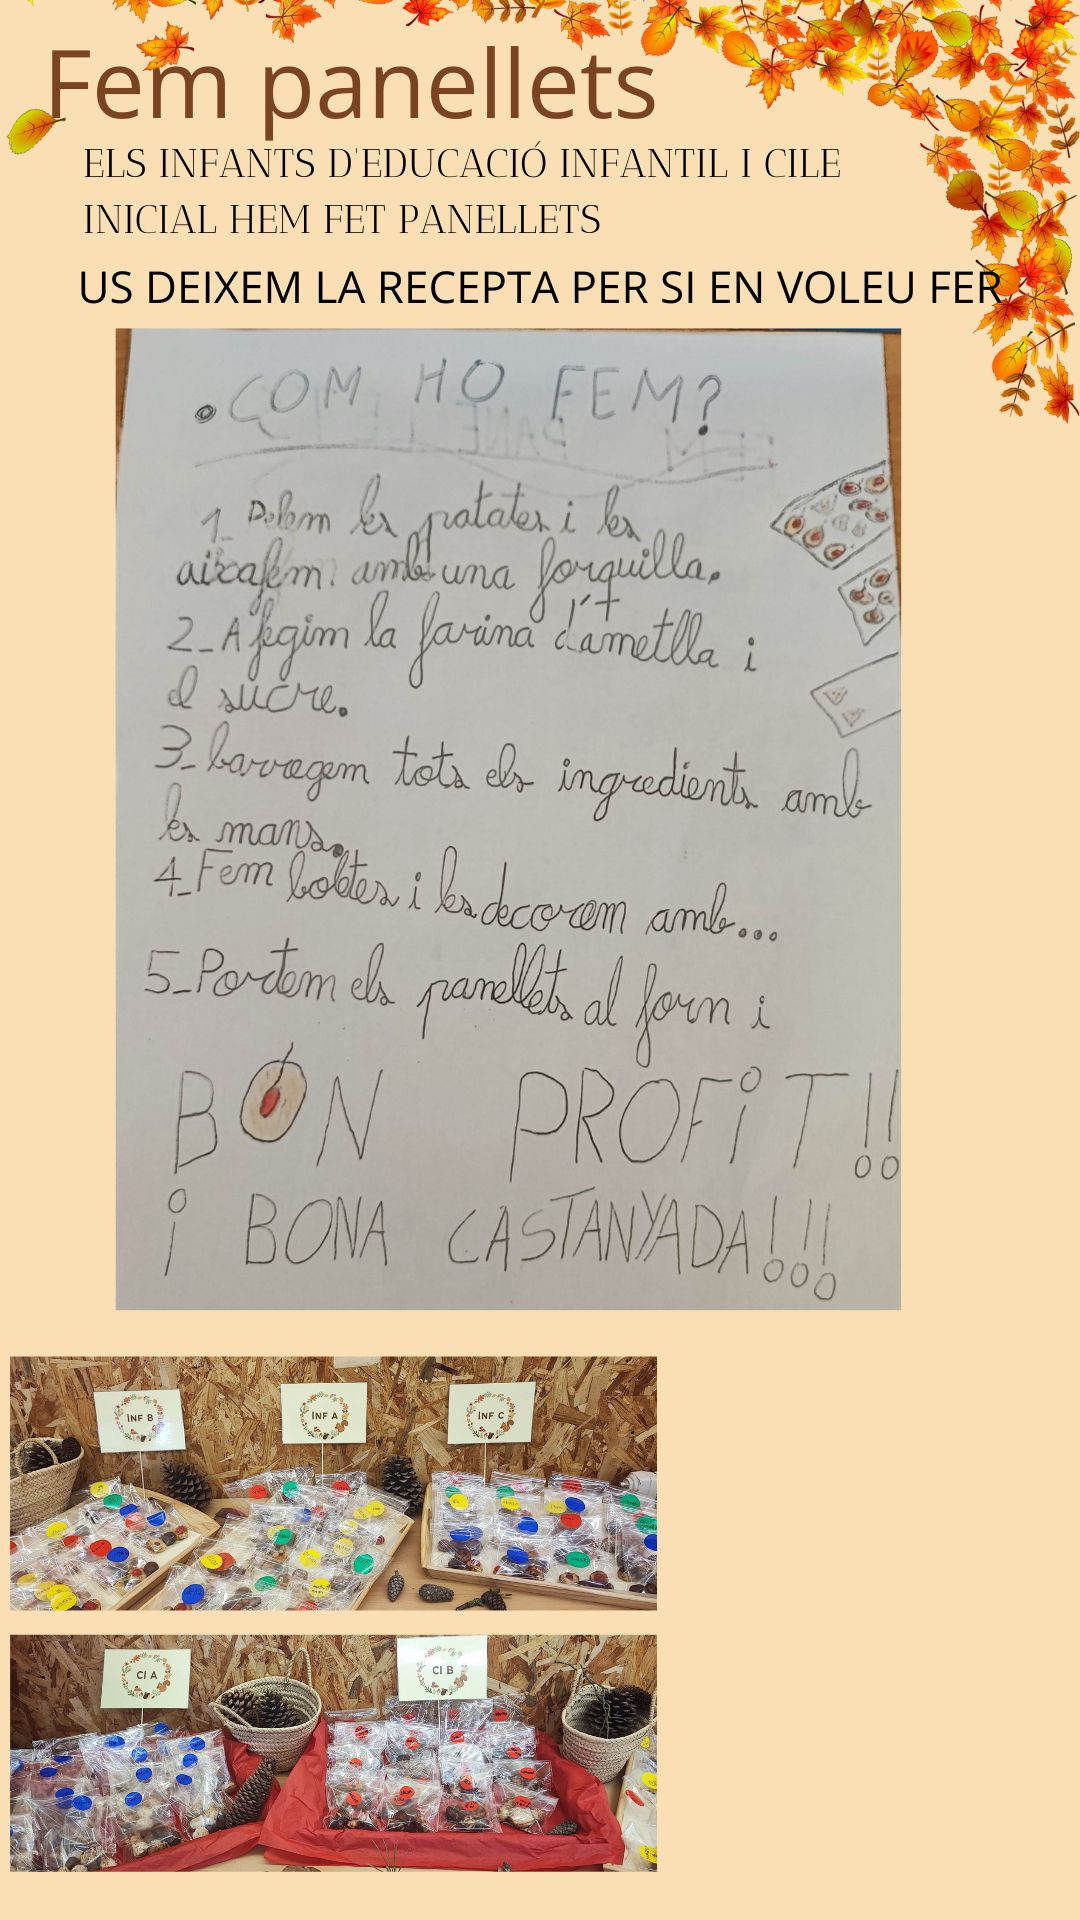 Fem panellets
ELS INFANTS D'EDUCACIÓ INFANTIL I CILE
INICIAL HEM FET PANELLETS
US DEIXEM LA RECEPTA PER SI EN VOLEU FER
.COM HO FEM?
1_ Pelem les patates i les
aixafem amb una forquilla.
2_Afegim la farina d'ametlla i
el sucre.
3_barregem tots els ingredients amb
les mans.
4_Fem boletes i les decorem amb...
5_Portem els panellets al forn i
BON PROFiT!!
i BONA CASTANYADA!!!
INF B
INF A
INF C
CI A
CI B